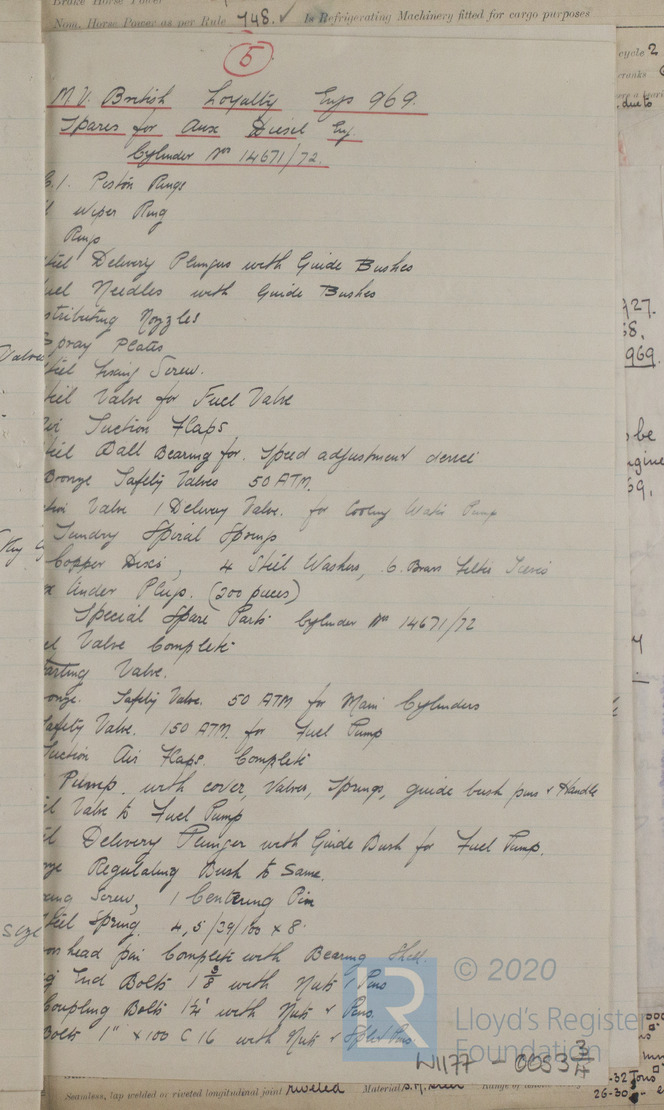 Brake Horse Power
Nom. Horse Power as per Rule 748. ✓ Is Refrigerating Machinery fitted for cargo purposes
5
M.V. British Loyalty Eng 969.
Spares for Aux Diesel Eng.
Cylinder Nos 14671/72.
C.I. Piston Rings
wiper Ring
Rings
Delivery Plungers with Guide Bushes
Needles with Guide Bushes
Nozzles
Spray Plates
Fixing Screw.
Valve for Fuel Valve
Suction Flaps
Ball Bearing for Speed adjustment device
Bronze Safety Valves 50 ATM.
Valve 1 Delivery Valve. for Cooling Water Pump
Sundry Spiral Springs
Copper Discs, 4 Steel Washers, 6 Brass Filter Sieves
Under Plugs. (200 pieces)
Special Spare Parts Cylinder Nos 14671/72
Valve Complete
Valve.
Safety Valve. 50 ATM for Main Cylinders
Safety Valve. 150 ATM. for Fuel Pump
Suction Air Flaps. Complete
Pump. with cover, Valves, Springs, guide bush pins & Handle
Valve to Fuel Pump
Delivery Plunger with Guide Bush for Fuel Pump.
Regulating Bush to Same.
Screw, 1 Centering Pin
Steel Spring. 4,5/39/100 x 8
head pin Complete with Bearing Shell.
End Bolts 1 3/8 with Nuts & Pins
Coupling Bolts 1¼" with Nuts & Pins.
Bolts 1" x 100 C 16 with Nuts & Split Pins
© 2020
Lloyd's Register
Foundation
W1177-0053 3/4
Seamless, lap welded or riveted longitudinal joint riveted Material S.M. Steel Range of tensile